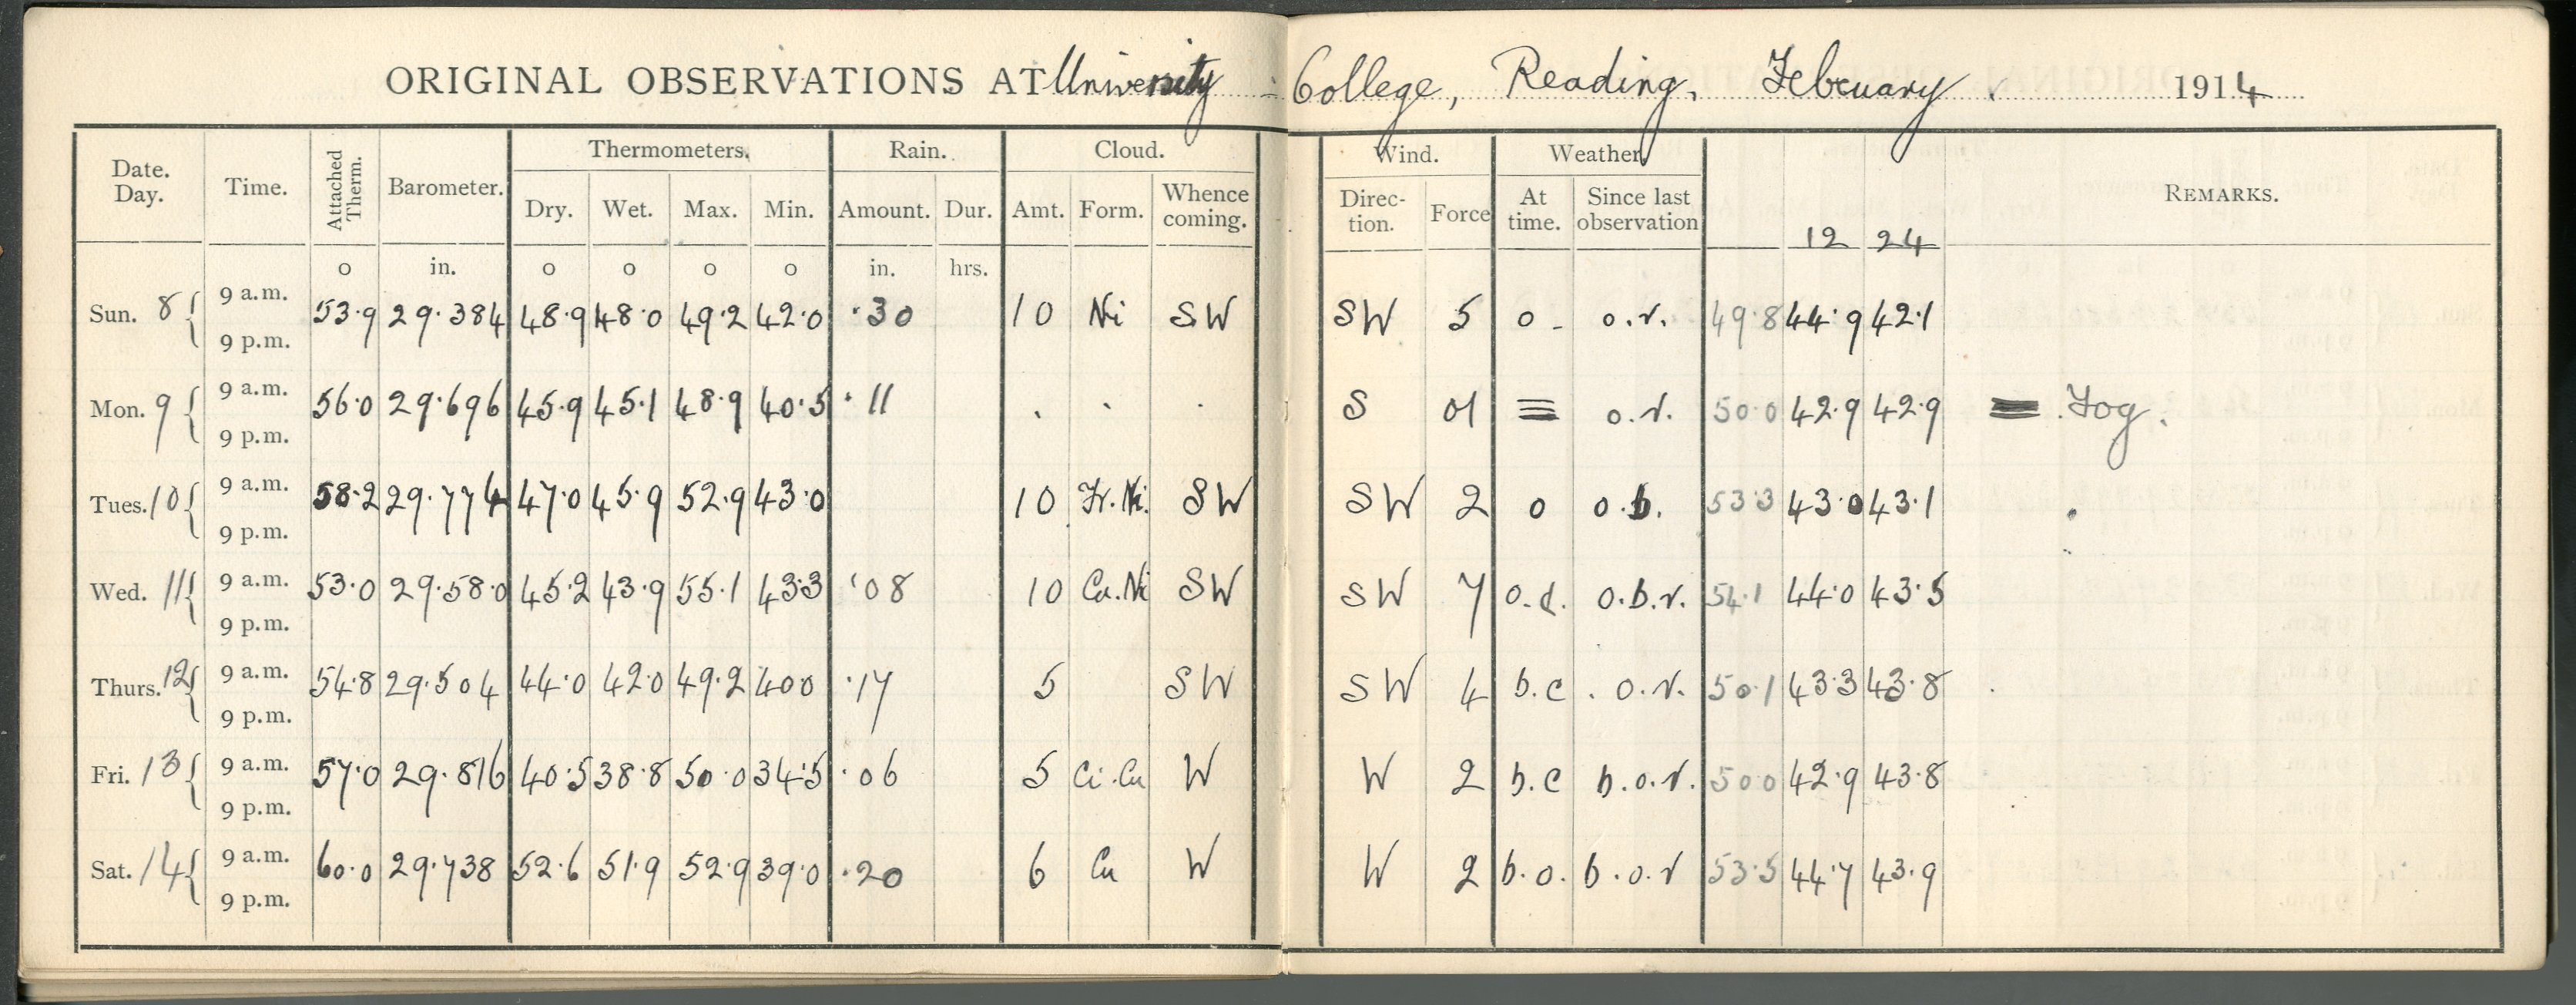 ORIGINAL OBSERVATIONS AT University College, Reading. February. 1914
Date. Day. Time. Attached Therm. Barometer. Thermometers. Rain. Cloud. Wind. Weather. REMARKS.
Dry. Wet. Max. Min. Amount. Dur. Amt. Form. Whence coming. Direc-tion. Force At time. Since last observation 12 24
o in. o o o o in. hrs.
Sun. 8 { 9 a.m. 53.9 29.384 48.9 48.0 49.2 42.0 .30 10 Ni SW SW 5 o o.r. 49.8 44.9 42.1
9 p.m.
Mon. 9 { 9 a.m. 56.0 29.696 45.9 45.1 48.9 40.5 .11 . . . S 01 ≡ o.r. 50.0 42.9 42.9 ≡ Fog.
9 p.m.
Tues. 10 { 9 a.m. 58.2 29.774 47.0 45.9 52.9 43.0 10 Fr.Ni. SW SW 2 o o.b. 53.3 43.0 43.1
9 p.m.
Wed. 11 { 9 a.m. 53.0 29.58.0 45.2 43.9 55.1 43.3 .08 10 Cu.Ni SW SW 7 o.d. o.b.r. 54.1 44.0 43.5
9 p.m.
Thurs. 12 { 9 a.m. 54.8 29.504 44.0 42.0 49.2 40.0 .17 5 SW SW 4 b.c . o.r. 50.1 43.3 43.8
9 p.m.
Fri. 13 { 9 a.m. 57.0 29.816 40.5 38.8 50.0 34.5 .06 5 Ci.Cu W W 2 b.c b.o.r. 50.0 42.9 43.8
9 p.m.
Sat. 14 { 9 a.m. 60.0 29.738 52.6 51.9 52.9 39.0 .20 6 Cu W W 2 b.o. b.o.r 53.5 44.7 43.9
9 p.m.